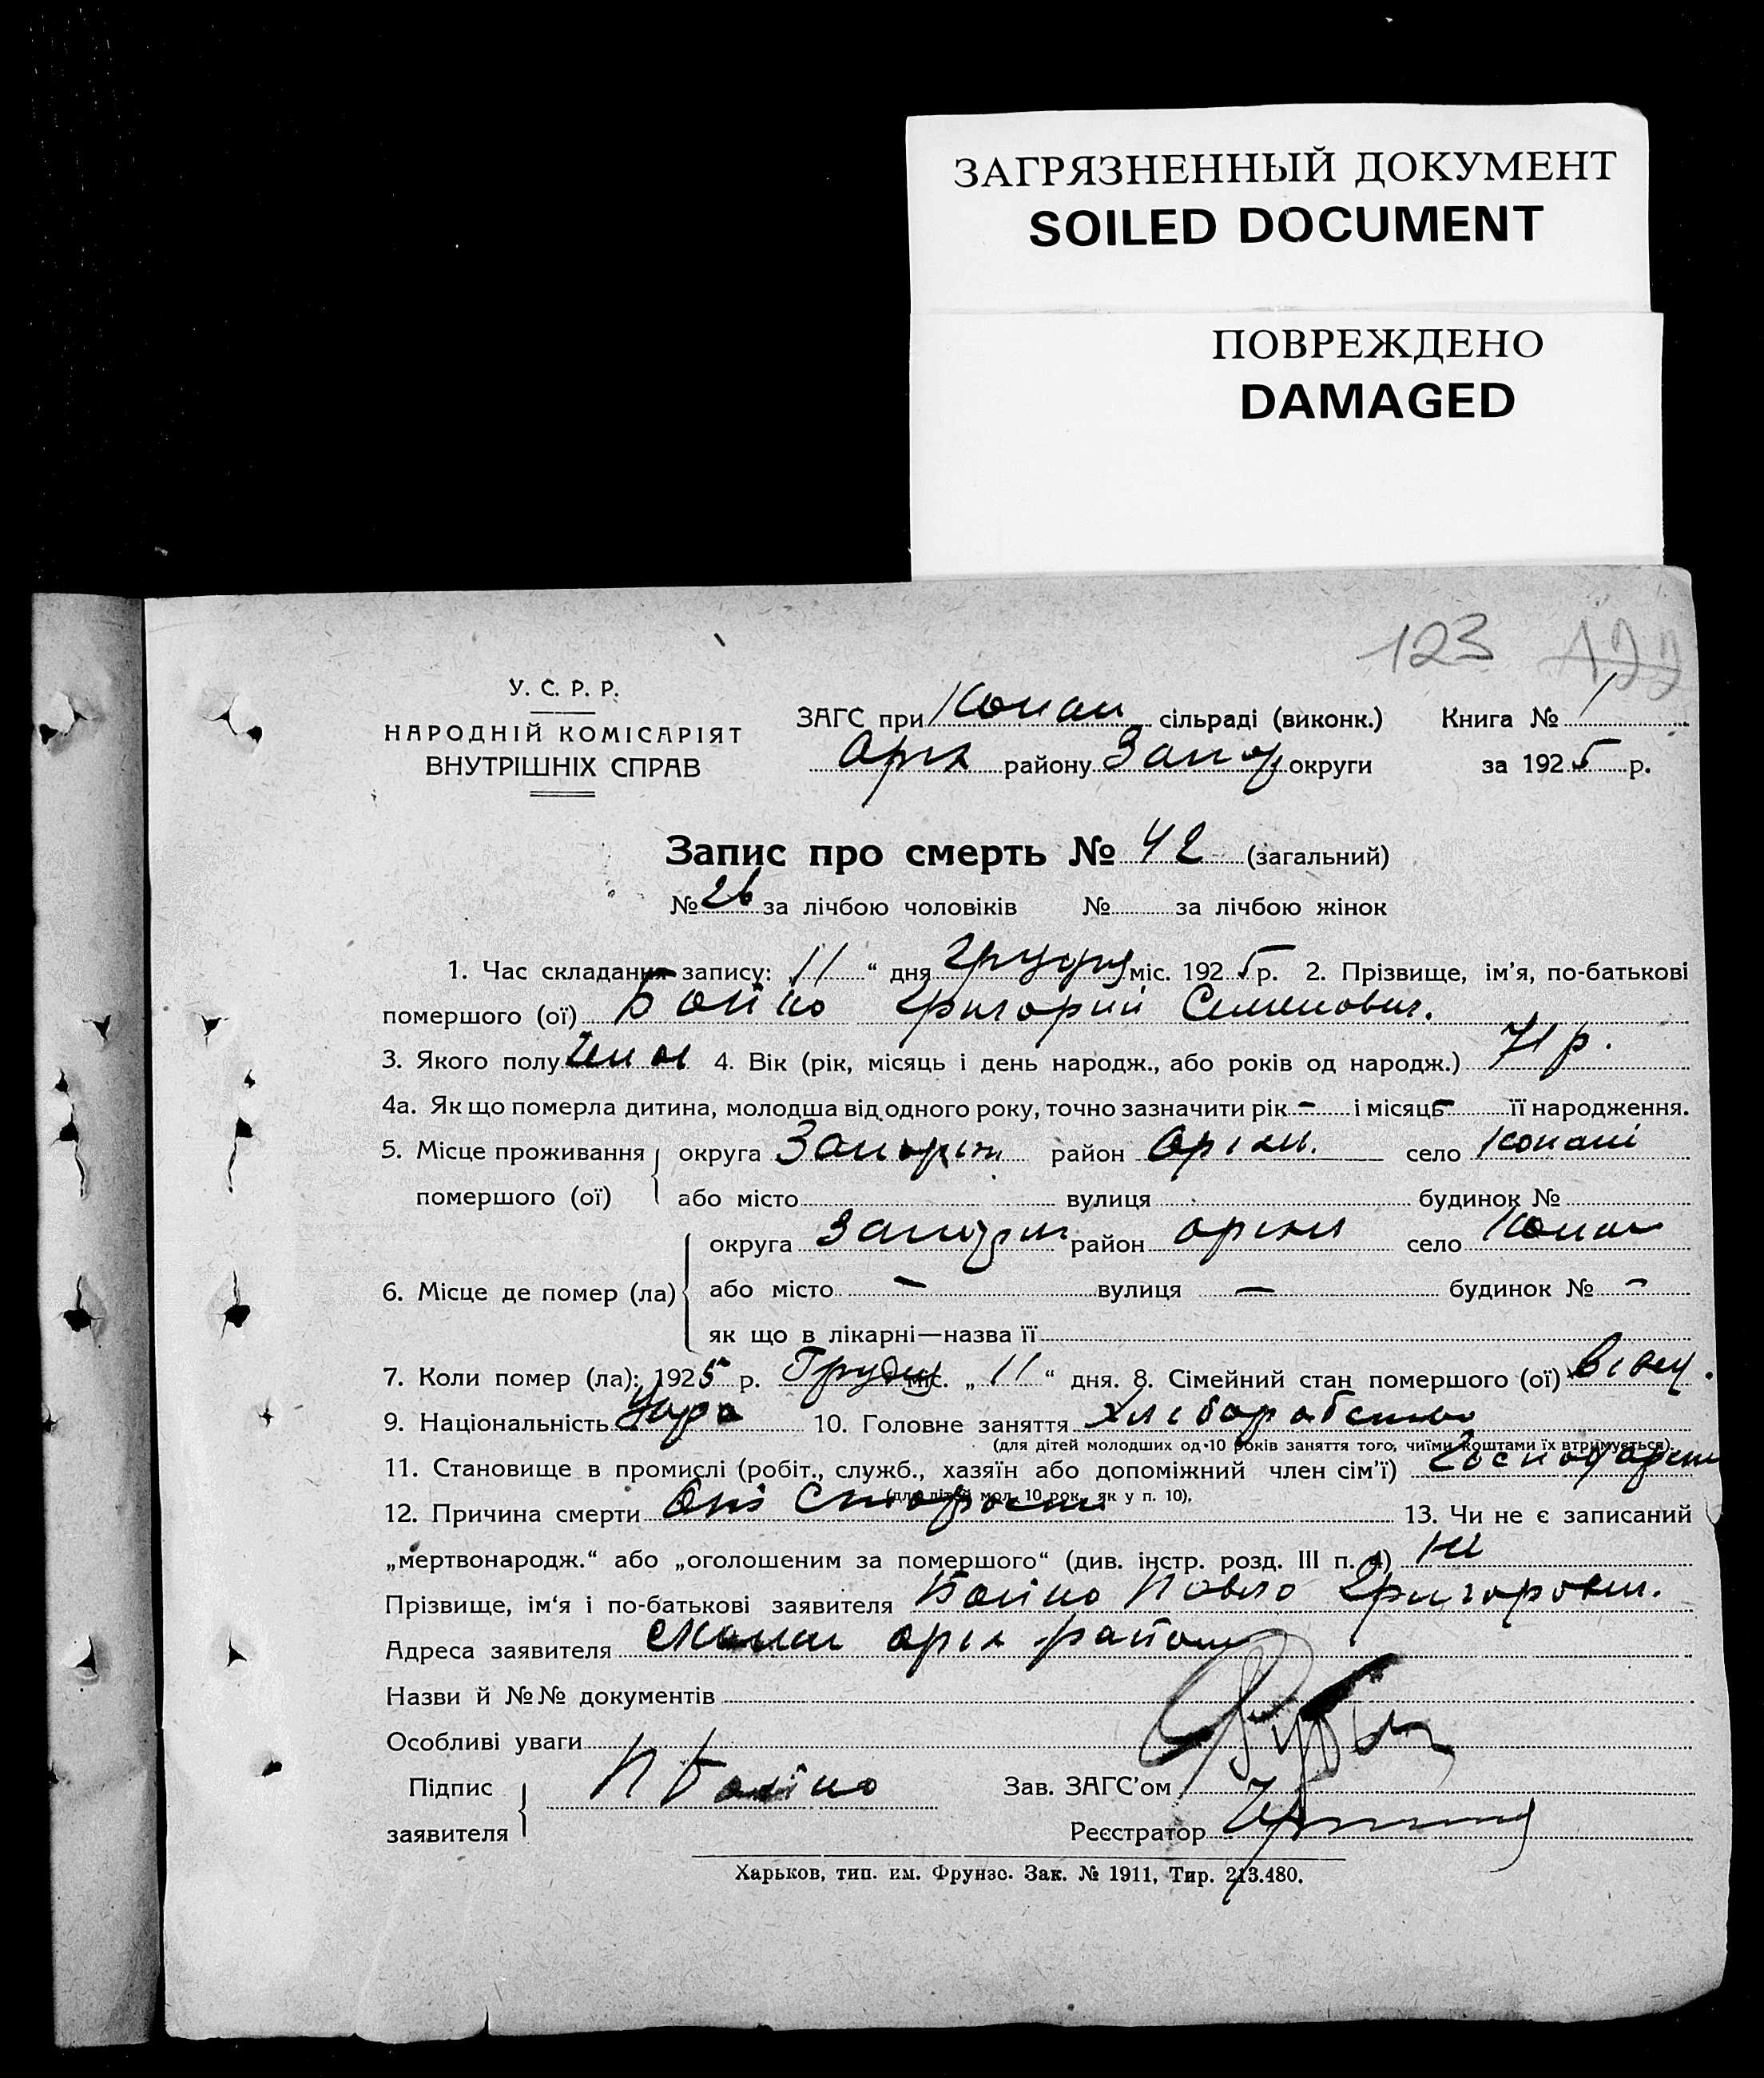 ЗАГРЯЗНЕННЫЙ ДОКУМЕНТ
SOILED DOCUMENT
ПОВРЕЖДЕНО
DAMAGED
123
У. С. Р. Р.
НАРОДНІЙ КОМІСАРІЯТ
ВНУТРІШНІХ СПРАВ
ЗАГС при Копан сільраді (виконк.) Книга № 1
Оріх району Запор округи за 1925 р.
Запис про смерть № 42 (загальний)
№ 26 за лічбою чоловіків № за лічбою жінок
1. Час складання запису: 11 “ дня грудня міс. 1925 р. 2. Прізвище, ім’я, по-батькові
помершого (ої) Бойко Григорий Семенович.
3. Якого полу чол 4. Вік (рік, місяць і день народж., або років од народж.) 71 р.
4а. Як що померла дитина, молодша від одного року, точно зазначити рік – і місяць – її народження.
5. Місце проживання помершого (ої) округа Запоріж район Оріхи. село Копані
або місто вулиця будинок №
6. Місце де помер (ла) округа район село Копан
або місто – вулиця – будинок № –
як що в лікарні—назва її
7. Коли помер (ла): 1925 р. Грудня міс. „ 11 “ дня. 8. Сімейний стан помершого (ої)
9. Національність Укра 10. Головне заняття Хліборобство
(для дітей молодших од 10 років заняття того, чиїми коштами їх втримується).
11. Становище в промислі (робіт., служб., хазяїн або допоміжний член сім’ї)
(для дітей мол. 10 рок. як у п. 10),
12. Причина смерти Від Старости 13. Чи не є записаний
„мертвонародж.“ або „оголошеним за помершого“ (див. інстр. розд. III п. 4) ні
Прізвище, ім‘я і по-батькові заявителя Бойко Павло Григорович.
Адреса заявителя оріх району
Назви й №№ документів
Особливі уваги
Підпис заявителя П Бойко Зав. ЗАГС’ом
Реєстратор
Харьков, тип. им. Фрунзе. Зак. № 1911, Тир. 213.480.